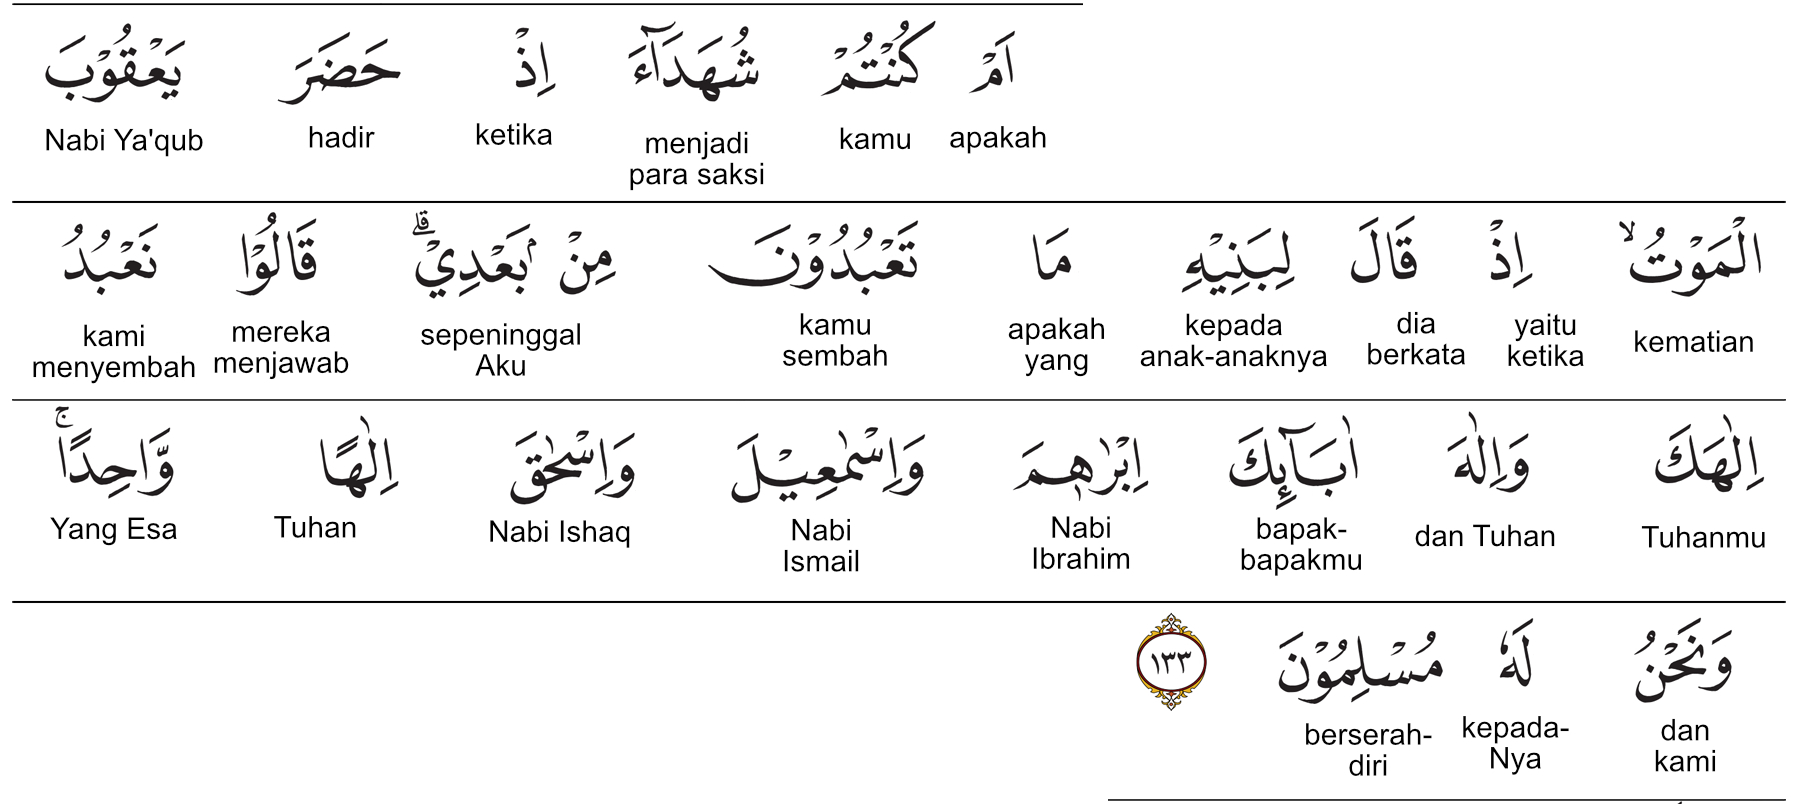 اَمْ كُنْتُمْ شُهَدَاۤءَ اِذْ حَضَرَ يَعْقُوْبَ
apakah kamu menjadi para saksi ketika hadir Nabi Ya'qub
الْمَوْتُۙ اِذْ قَالَ لِبَنِيْهِ مَا تَعْبُدُوْنَ مِنْۢ بَعْدِيْۗ قَالُوْا نَعْبُدُ
kematian yaitu ketika dia berkata kepada anak-anaknya apakah yang kamu sembah sepeninggal Aku mereka menjawab kami menyembah
اِلٰهَكَ وَاِلٰهَ اٰبَاۤىِٕكَ اِبْرٰهٖمَ وَاِسْمٰعِيْلَ وَاِسْحٰقَ اِلٰهًا وَّاحِدًاۚ
Tuhanmu dan Tuhan bapak-bapakmu Nabi Ibrahim Nabi Ismail Nabi Ishaq Tuhan Yang Esa
وَنَحْنُ لَهٗ مُسْلِمُوْنَ ١٣٣
dan kami kepada-Nya berserah-diri